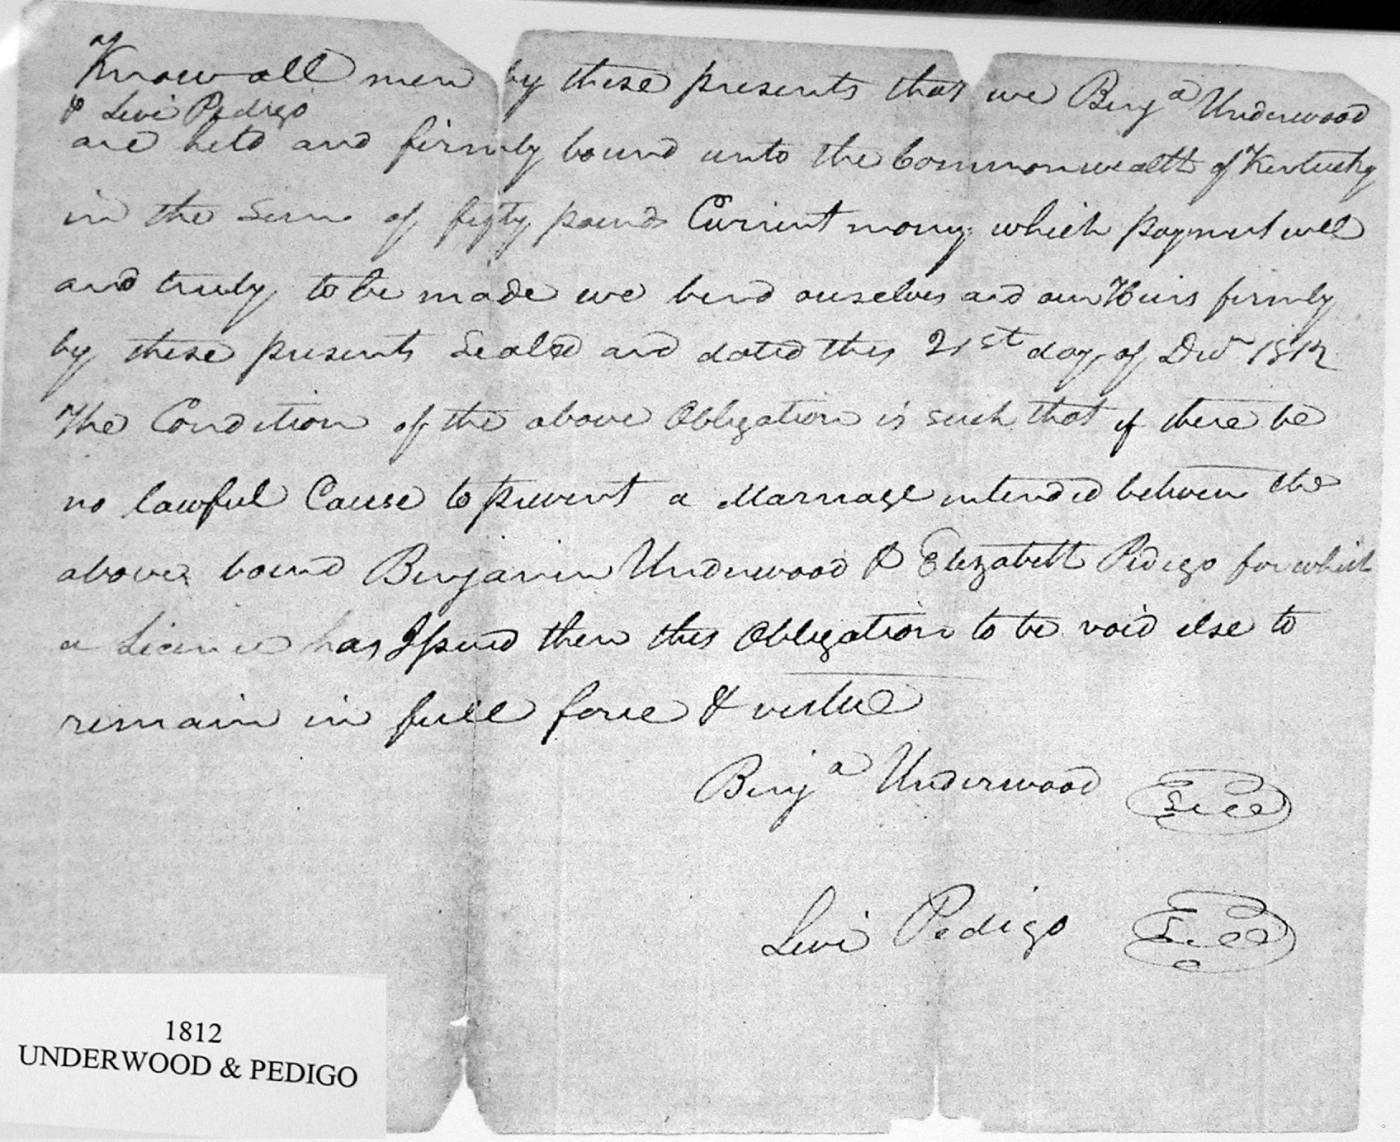 Know all men by these presents that we Benjᵃ Underwood
& Levi Pedigo
are held and firmly bound unto the Commonwealth of Kentucky
in the Sum of fifty pounds Current mony which payment well
and truly to be made we bind ourselves and our Heirs firmly
by these presents Sealed and dated this 21st day of Decr 1812
The Condition of the above Obligation is such that if there be
no lawful Cause to prevent a Marriage intended between the
above bound Benjamin Underwood & Elizabeth Pedigo for which
a Licence has Issued then this Obligation to be void else to
remain in full force & virtue
Benjᵃ Underwood Seal
Levi Pedigo Seal
1812
UNDERWOOD & PEDIGO